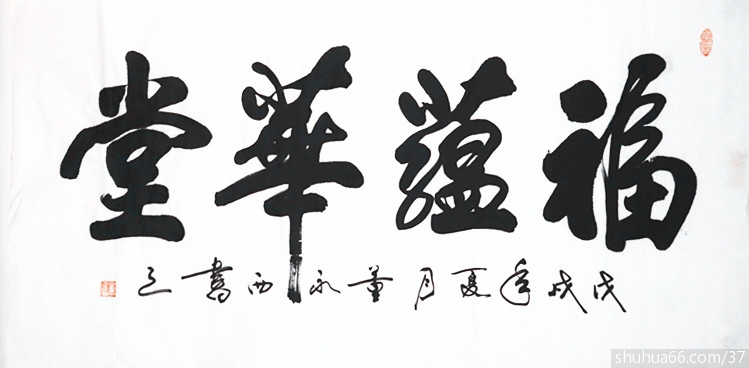 福蕴華堂
戊戌年夏月董永西書之
shuhua66.com/37